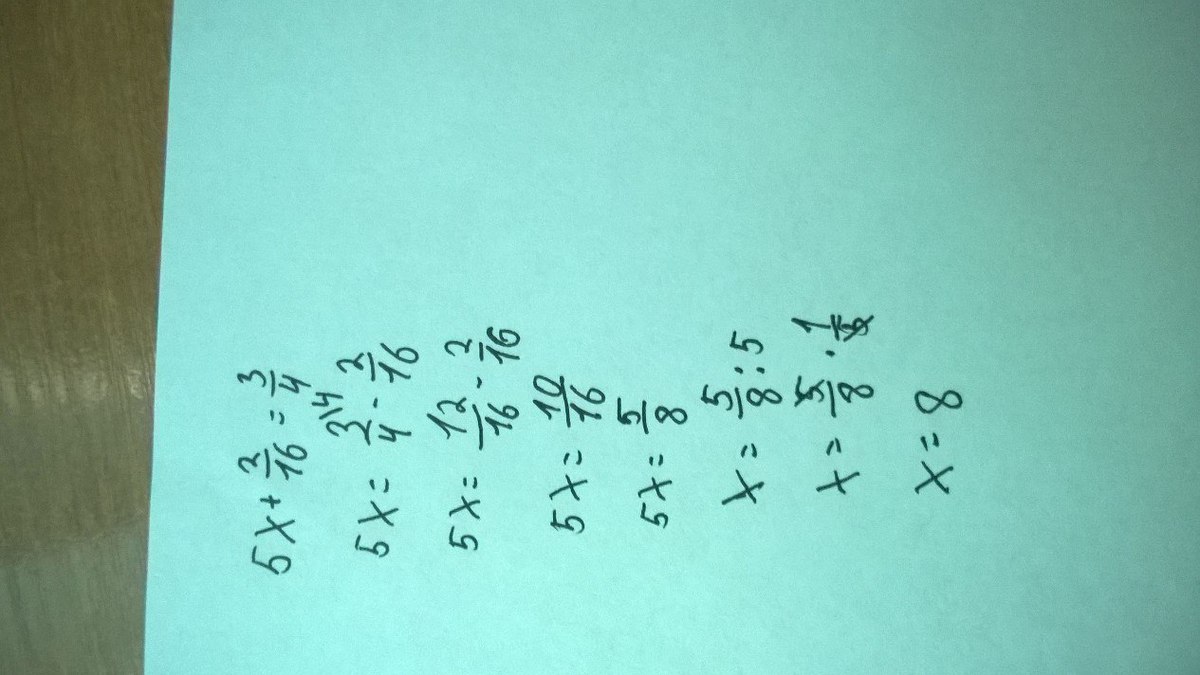 5x + 2/16 = 3/4
5x = 3\4/4 - 2/16
5x = 12/16 - 2/16
5x = 10/16
5x = 5/8
x = 5/8 : 5
x = 5/8 · 1/5
x = 8